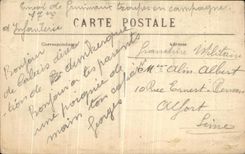 Envoi de troupes en campagne
d'Infanterie
CARTE POSTALE
Correspondance
Franchise Militaire
Bonjour
de Calais
tion de Dunkerque
Bonjour à tes parents
une poignée de
main ton
Georges
Alin Albert
10 Rue Ernest Renan
Alfort
Seine